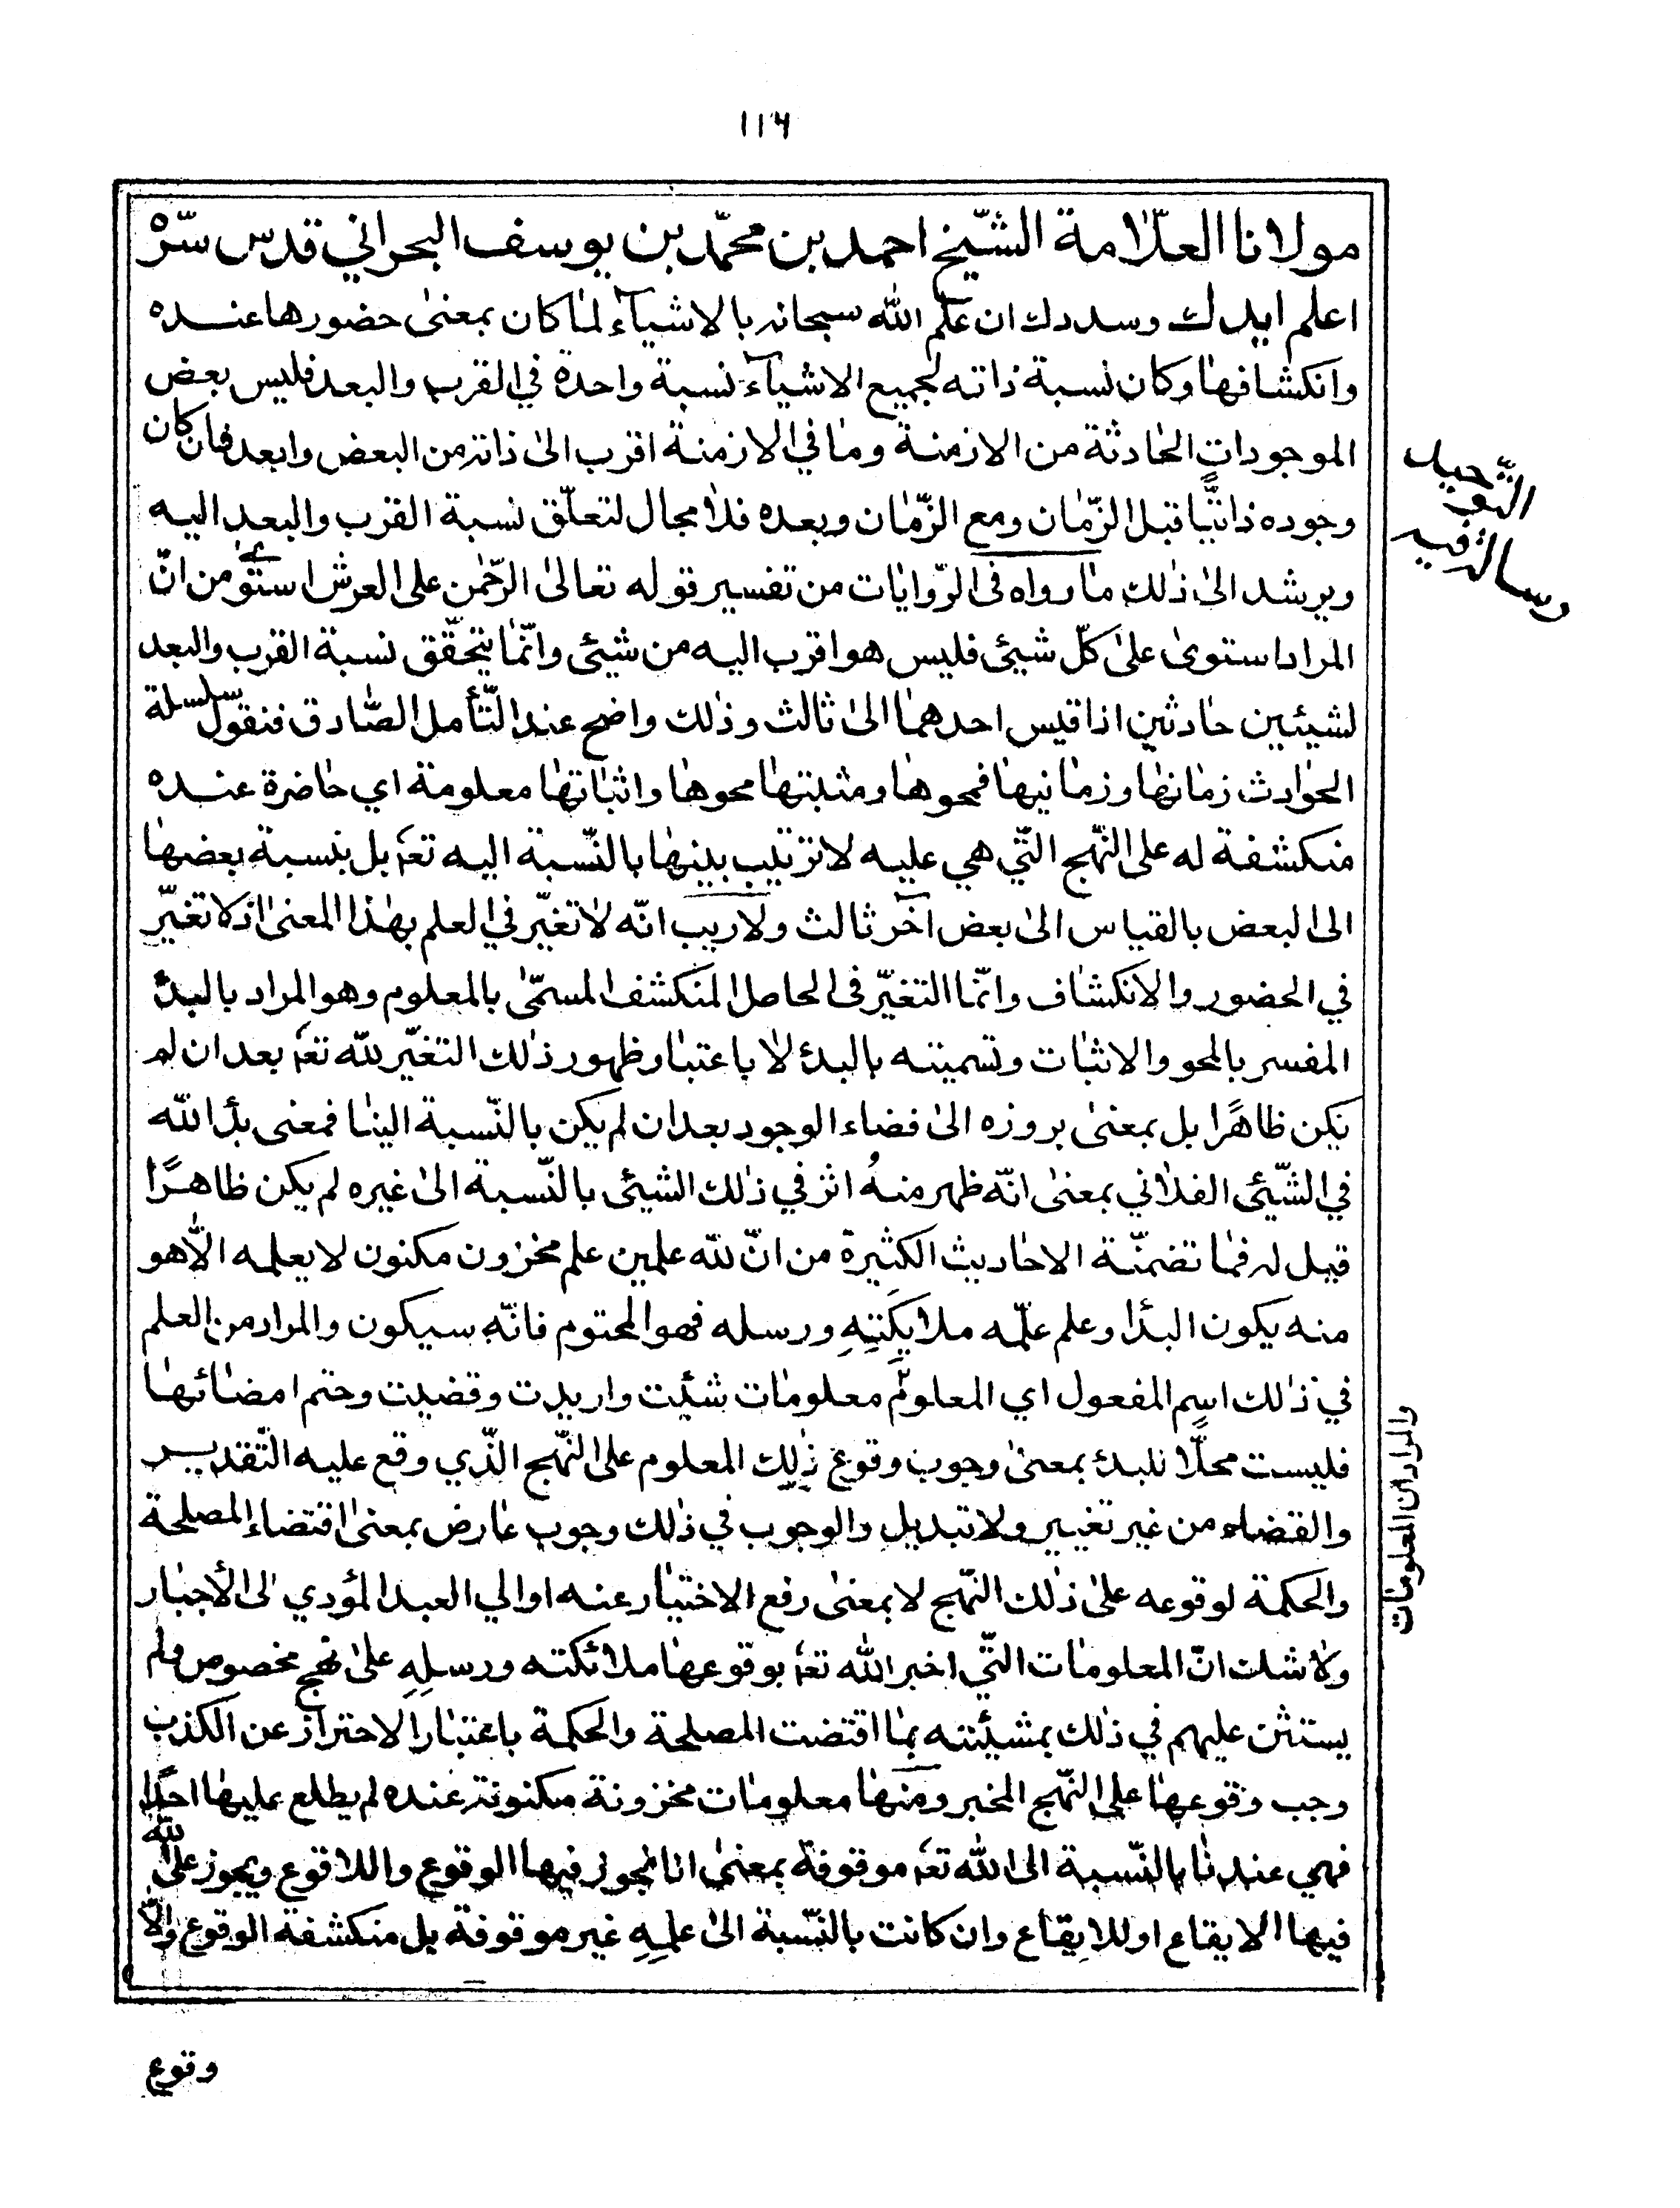 ١١٦
مولانا العلّامة الشّيخ احمد بن محمّد بن يوسف البحراني قدس سرّه
اعلم ايدك وسددك ان علم الله سبحانه بالاشيآء لمّا كان بمعنى حضورها عنده
وانكشافها وكان نسبة ذاته لجميع الاشيآء نسبة واحدة في القرب والبعد فليس بعض
الموجودات الحادثة من الازمنة وما في الازمنة اقرب الى ذاته من البعض وابعد فان كان
وجوده ذاتيًّا قبل الزّمان ومع الزّمان وبعده فلا مجال لتعلّق نسبة القرب والبعد اليه
ويرشد الى ذلك ما رواه فى الرّوايات من تفسير قوله تعالى الرّحمن على العرش استوى من انّ
المراد استوى على كلّ شيئى فليس هو اقرب اليه من شيئى وانّما يتحقّق نسبة القرب والبعد
لشيئين حادثين اذا قيس احدهما الى ثالث وذلك واضح عند التّأمل الصّادق فنقول سلسلة
الحوادث زمانها وزمانيها فمحوها ومثبتها محوها واثباتها معلومة اي حاضرة عنده
منكشفة له على النّهج التّي هي عليه لا ترتيب بينها بالنّسبة اليه تعه بل بنسبة بعضها
الى البعض بالقياس الى بعض آخر ثالث ولا ريب انّه لا تغيّر في العلم بهذا المعنى اذ لا تغيّر
في الحضور والانكشاف وانّما التغيّر فى الحاصل المنكشف المسمّى بالمعلوم وهو المراد بالبدء
المفسر بالمحو والاثبات وتسميته بالبدء لا باعتبار ظهور ذلك التغيّر لله تعه بعد ان لم
يكن ظاهرًا بل بمعنى بروزه الى فضاء الوجود بعد ان لم يكن بالنّسبة الينا فمعنى بدأ الله
في الشّيئى الفلاني بمعنى انّه ظهر منهُ اثر في ذلك الشيئى بالنّسبة الى غيره لم يكن ظاهرًا
قبل له فما تضمنّة الاحاديث الكثيرة من انّ لله علمين علم مخزون مكنون لا يعلمه الّا هو
منه يكون البدا وعلم علّمه ملايكتهِ ورسله فهو المحتوم فانّه سيكون والمراد من العلم
في ذلك اسم المفعول اي المعلوم معلومات شئيت واريدت وقضيت وحتم امضائها
فليست محلّا للبدء بمعنى وجوب وقوع ذلِك المعلوم على النّهج الّذي وقع عليه التّقدير
والقضاء من غير تغيير ولا تبديل والوجوب في ذلك وجوب عارض بمعنى اقتضاء المصلحة
والحكمة لوقوعه على ذلك النّهج لا بمعنى رفع الاختيار عنه او الي العبد المؤدي الى الأجبار
ولا شك انّ المعلومات التّي اخبر الله تعه بوقوعها ملائكته ورسلِهِ على نهج مخصوص ولم
يستثن عليهم في ذلك بمشيئته بما اقتضت المصلحة والحكمة باعتبار الاحتراز عن الكذب
وجب وقوعها على النّهج المخبر ومنها معلومات مخزونة مكنونة عنده لم يطلع عليها احدًا
فهي عندنا بالنّسبة الى الله تعه موقوفة بمعنى انا نجوز فيها الوقوع واللاقوع ويجوز على الله
فيها الايقاع او للايقاع وان كانت بالنّسبة الى علمهِ غير موقوفة بل منكشفة الوقوع والّا
وقوع
التّوحيد
وسالثرقيد
والمراد ان المعلومات